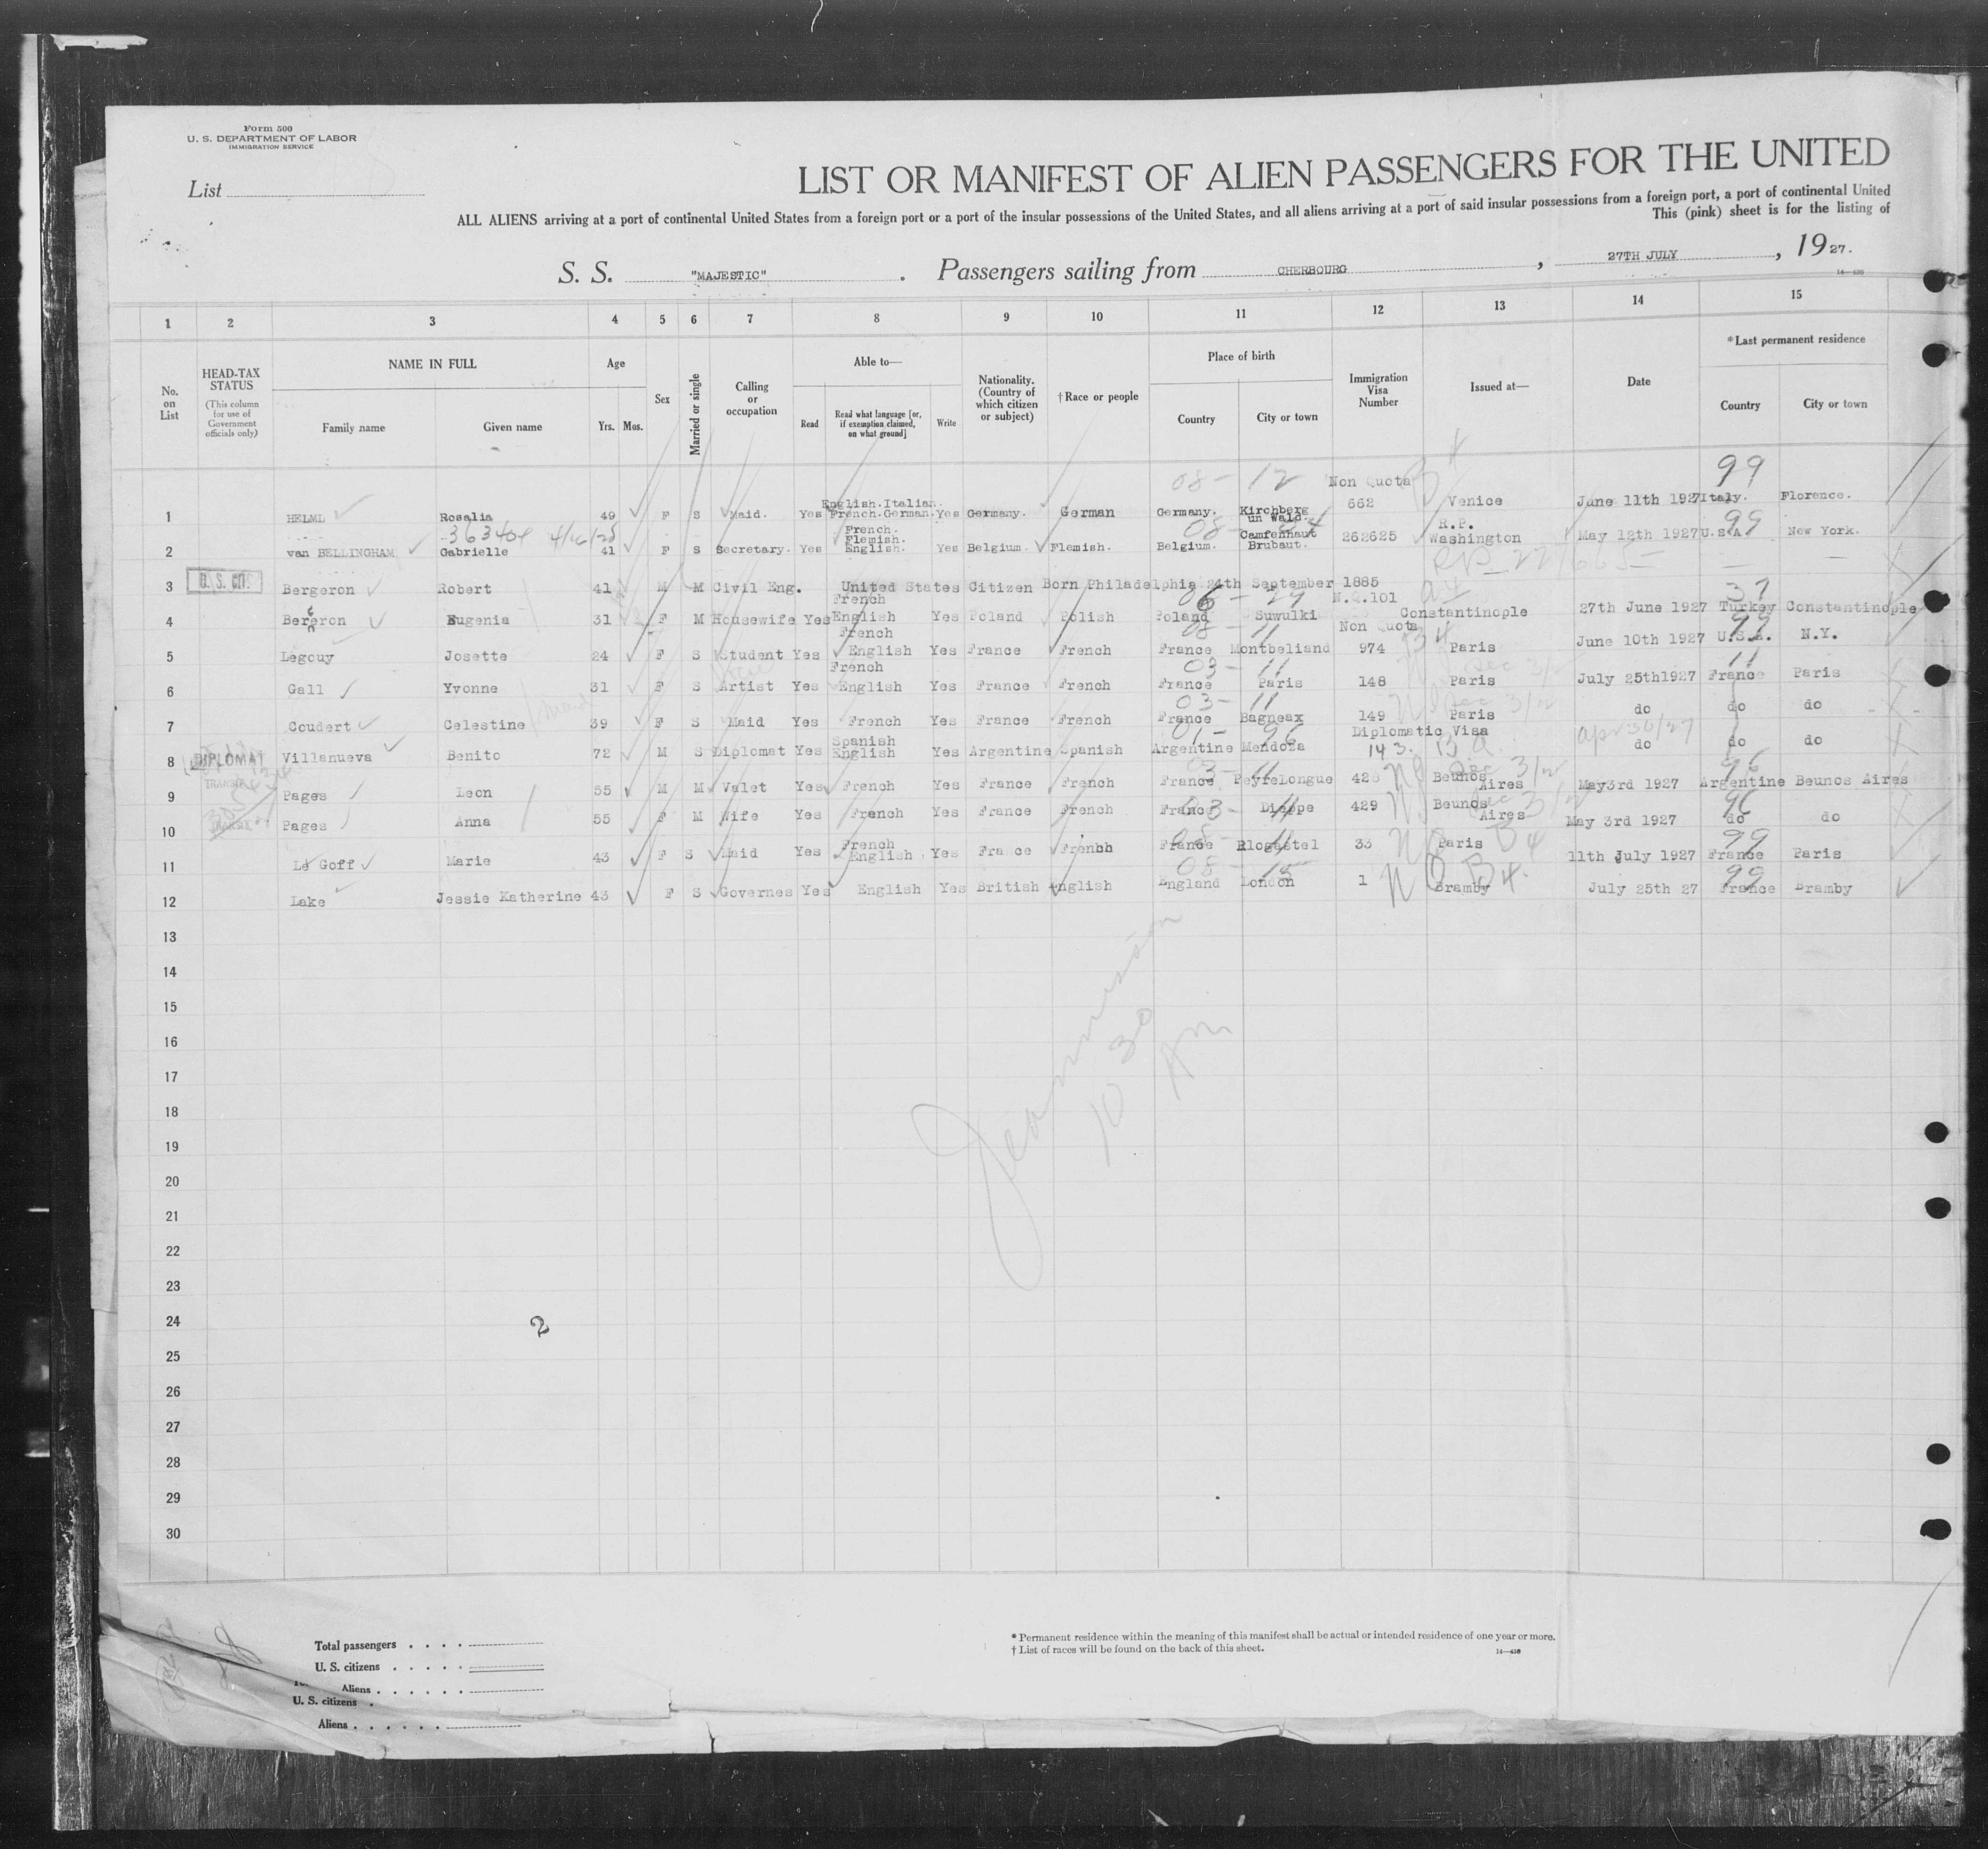 Form 500
U. S. DEPARTMENT OF LABOR
IMMIGRATION SERVICE
List
LIST OR MANIFEST OF ALIEN PASSENGERS FOR THE UNITED
ALL ALIENS arriving at a port of continental United States from a foreign port or a port of the insular possessions of the United States, and all aliens arriving at a port of said insular possessions from a foreign port, a port of continental United
This (pink) sheet is for the listing of
S. S. "MAJESTIC" . Passengers sailing from CHERBOURG , 27TH JULY , 19 27.
14—430
1 2 3 4 5 6 7 8 9 10 11 12 13 14 15
No. on List
HEAD-TAX STATUS
(This column for use of Government officials only)
NAME IN FULL
Family name Given name
Age
Yrs. Mos.
Sex
Married or single
Calling or occupation
Able to—
Read
Read what language [or, if exemption claimed, on what ground]
Write
Nationality. (Country of which citizen or subject)
†Race or people
Place of birth
Country City or town
Immigration Visa Number
Issued at—
Date
*Last permanent residence
Country City or town
08 - 12 Non Quota 99
1 HELML Rosalia 49 F S Maid. Yes English.Italian. French.German. Yes Germany. German Germany. Kirchberg un Wald. 662 Venice June 11th 1927 Italy. Florence.
2 van BELLINGHAM Gabrielle 41 F S Secretary. Yes French. Flemish. English. Yes Belgium. Flemish. Belgium. Camfenhaut Brubaut. 262625 R.P. Washington May 12th 1927 U.S.A. New York.
3 U. S. CIT. Bergeron Robert 41 M M Civil Eng. United States Citizen Born Philadelphia 24th September 1885
4 Bereron Eugenia 31 F M Housewife Yes French English Yes Poland Polish Poland Suwulki N.Q.101 Constantinople 27th June 1927 Turkey Constantinople
5 Legouy Josette 24 F S Student Yes French English Yes France French France Montbeliand Non Quota 974 Paris June 10th 1927 U.S.A. N.Y.
6 Gall Yvonne 31 F S Artist Yes French English Yes France French France Paris 148 Paris July 25th1927 France Paris
7 Coudert Celestine 39 F S Maid Yes French Yes France French France Bagneax 149 Paris do do do
8 DIPLOMAT Villanueva Benito 72 M S Diplomat Yes Spanish English Yes Argentine Spanish Argentine Mendoza Diplomatic Visa 143. do do do
9 Pages Leon 55 M M Valet Yes French Yes France French France PeyreLongue 428 Beunos Aires May3rd 1927 Argentine Beunos Aires
10 Pages Anna 55 F M Wife Yes French Yes France French France Dieppe 429 Beunos Aires May 3rd 1927 do do
11 Le Goff Marie 43 F S Maid Yes French English Yes France French France Plogastel 33 Paris 11th July 1927 France Paris
12 Lake Jessie Katherine 43 F S Governes Yes English Yes British English England London 1 Bramby July 25th 27 France Bramby
13
14
15
16
17
18
19
20
21
22
23
24
25
26
27
28
29
30
10 30
2
Total passengers
U. S. citizens
Aliens
U. S. citizens
Aliens
* Permanent residence within the meaning of this manifest shall be actual or intended residence of one year or more.
† List of races will be found on the back of this sheet.
14—430